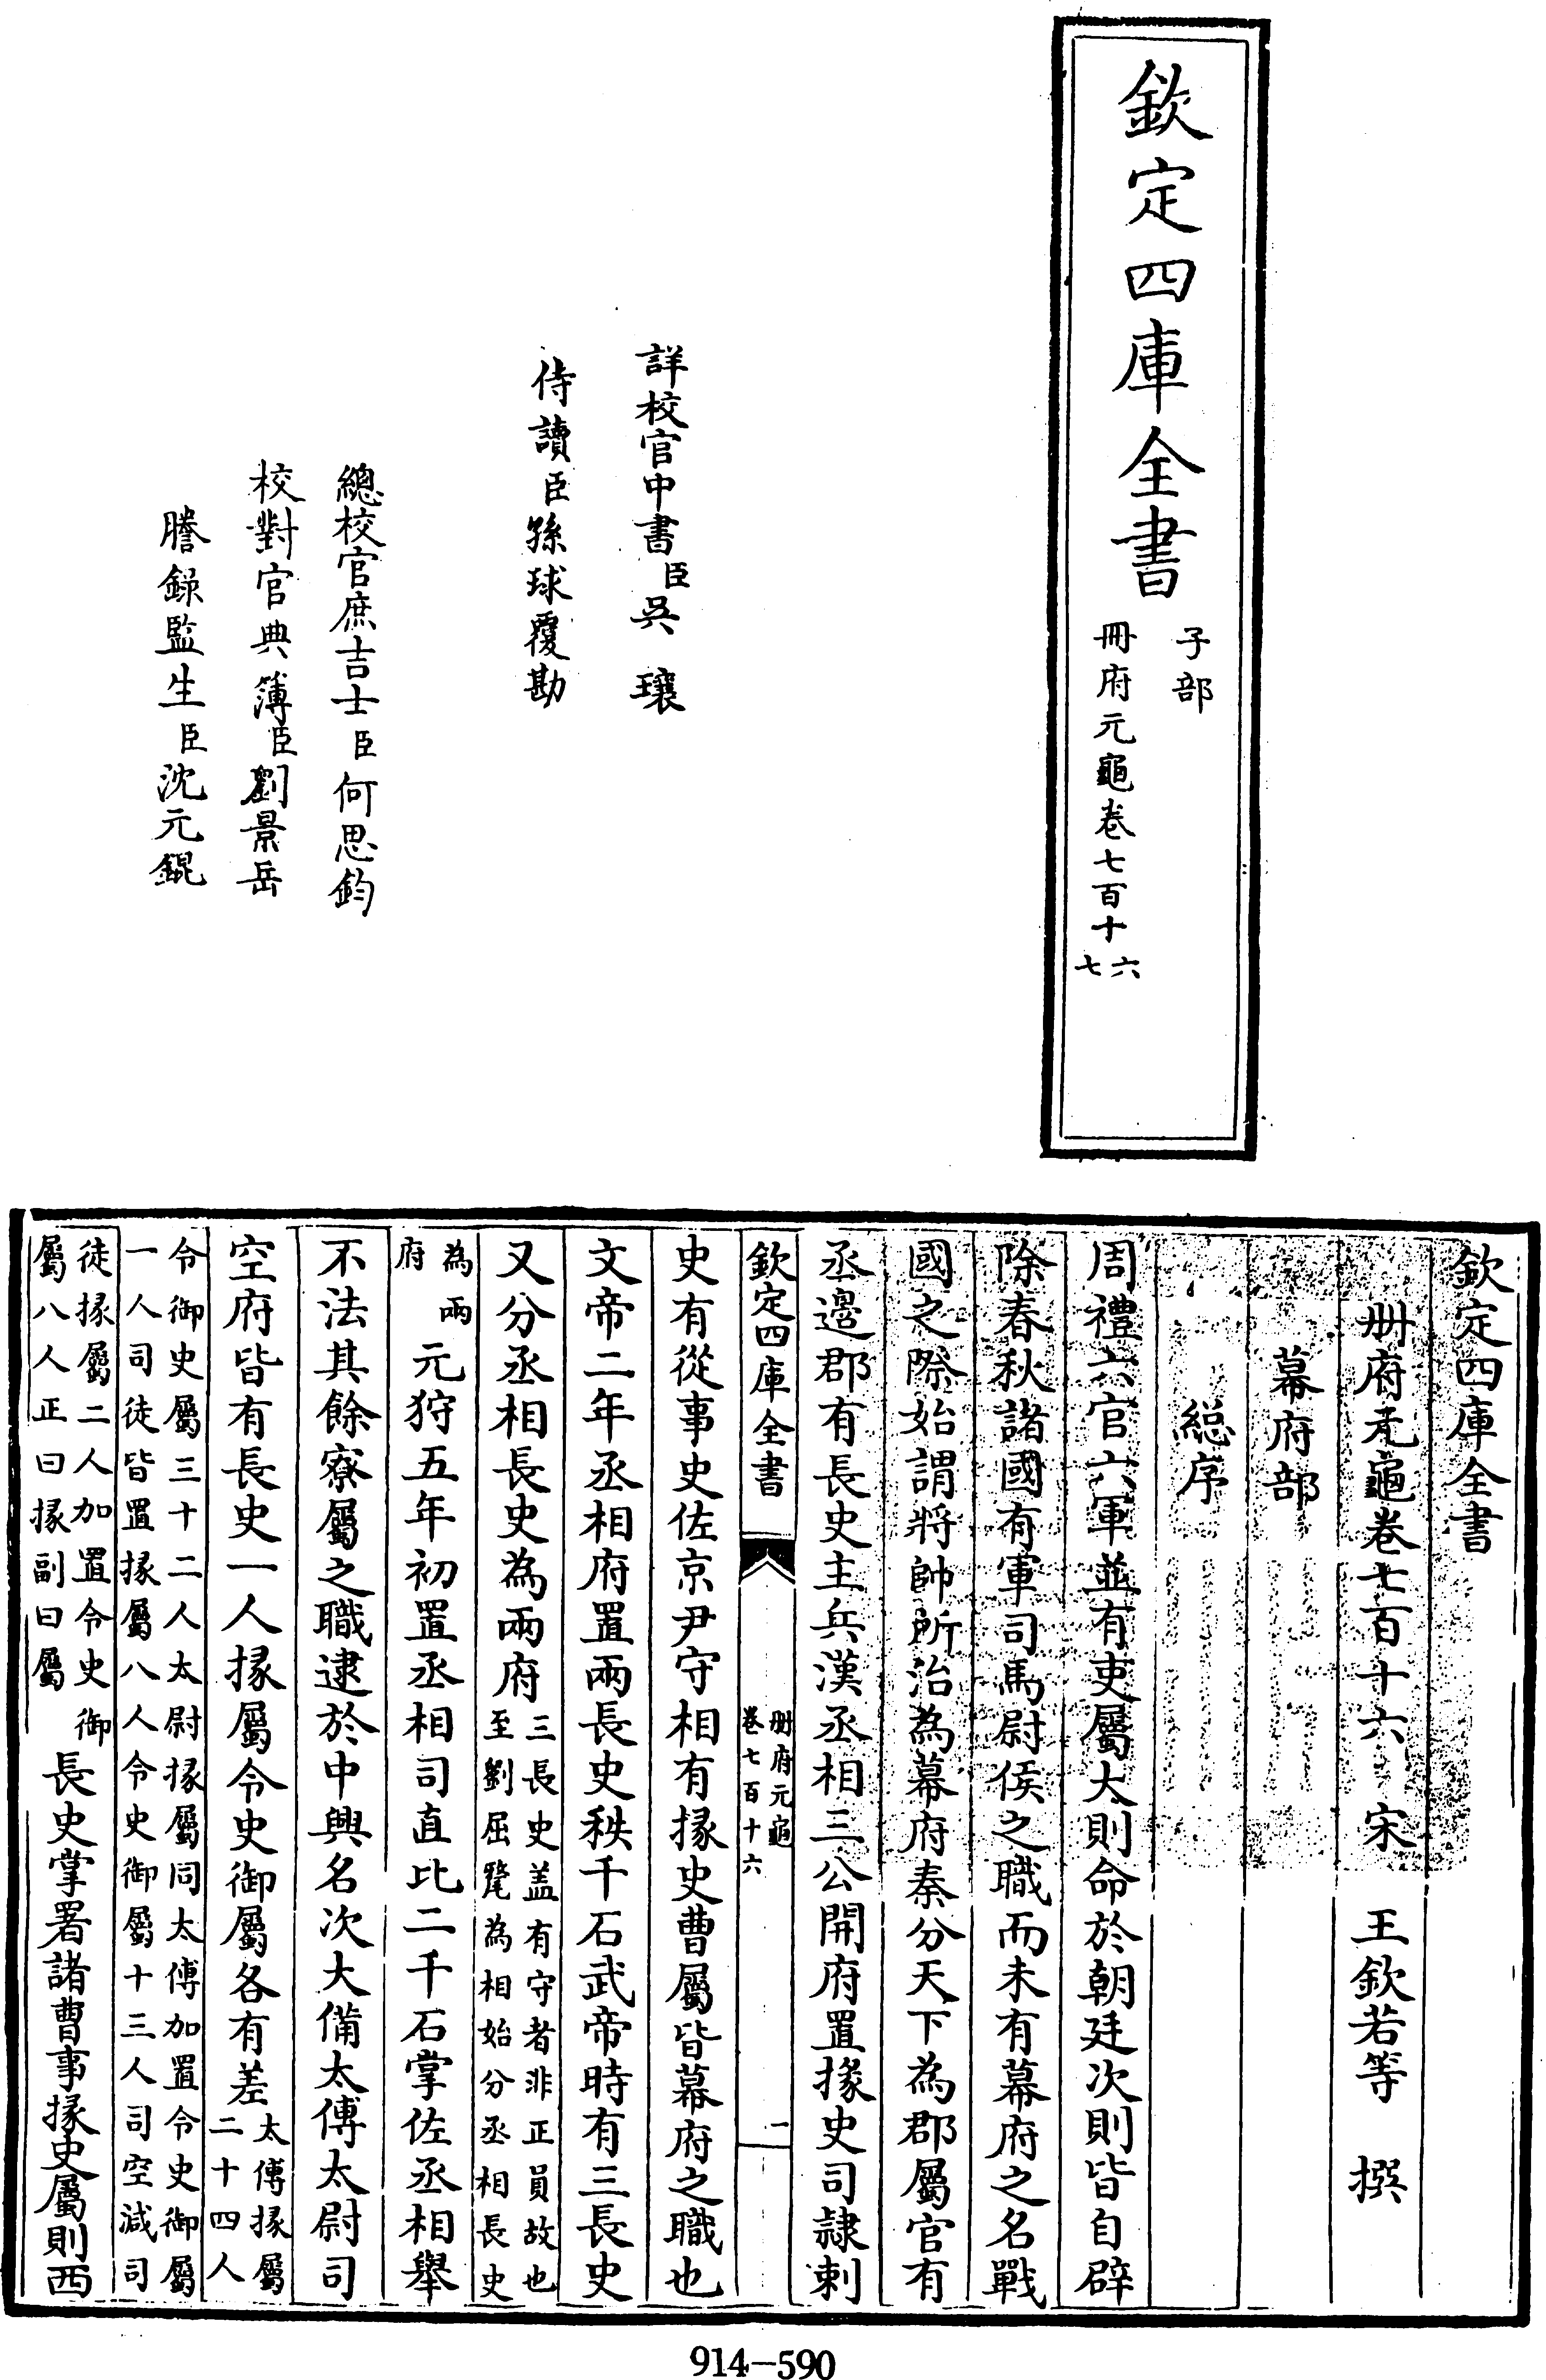 欽定四庫全書
子部
冊府元龜卷七百十六
七
詳校官中書臣吳瓌
侍讀臣孫球覆勘
總校官庶吉士臣何思鈞
校對官典簿臣劉景岳
謄錄監生臣沈元錕
欽定四庫全書
冊府元龜卷七百十六 宋 王欽若等 撰
幕府部
總序
周禮六官六軍並有吏屬大則命於朝廷次則皆自辟
除春秋諸國有軍司馬尉侯之職而未有幕府之名戰
國之際始謂將帥所治為幕府秦分天下為郡屬官有
丞邊郡有長史主兵漢丞相三公開府置掾史司隷刺
欽定四庫全書
冊府元龜
卷七百十六
一
史有從事史佐京尹守相有掾史曹屬皆幕府之職也
文帝二年丞相府置兩長史秩千石武帝時有三長史
又分丞相長史為兩府
三長史盖有守者非正員故也
至劉屈氂為相始分丞相長史
為兩
府
元狩五年初置丞相司直比二千石掌佐丞相舉
不法其餘寮屬之職逮於中興名次大備太傅太尉司
空府皆有長史一人掾屬令史御屬各有差
太傅掾屬
二十四人
令御史屬三十二人太尉掾屬同太傅加置令史御屬
一人司徒皆置掾屬八人令史御屬十三人司空減司
徒掾屬二人加置令史御
屬八人正曰掾副曰屬
長史掌署諸曹事掾史屬則西
914-590